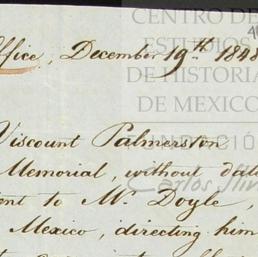 CENTRO DE
ffice, December 19th 1848
ESTUDIOS
DE HISTORIA
DE MEXICO
Viscount Palmerston
FUNDACIÓN
Memorial, without dat
Carlos Sli
ent to Mr Doyle,
Mexico, directing him